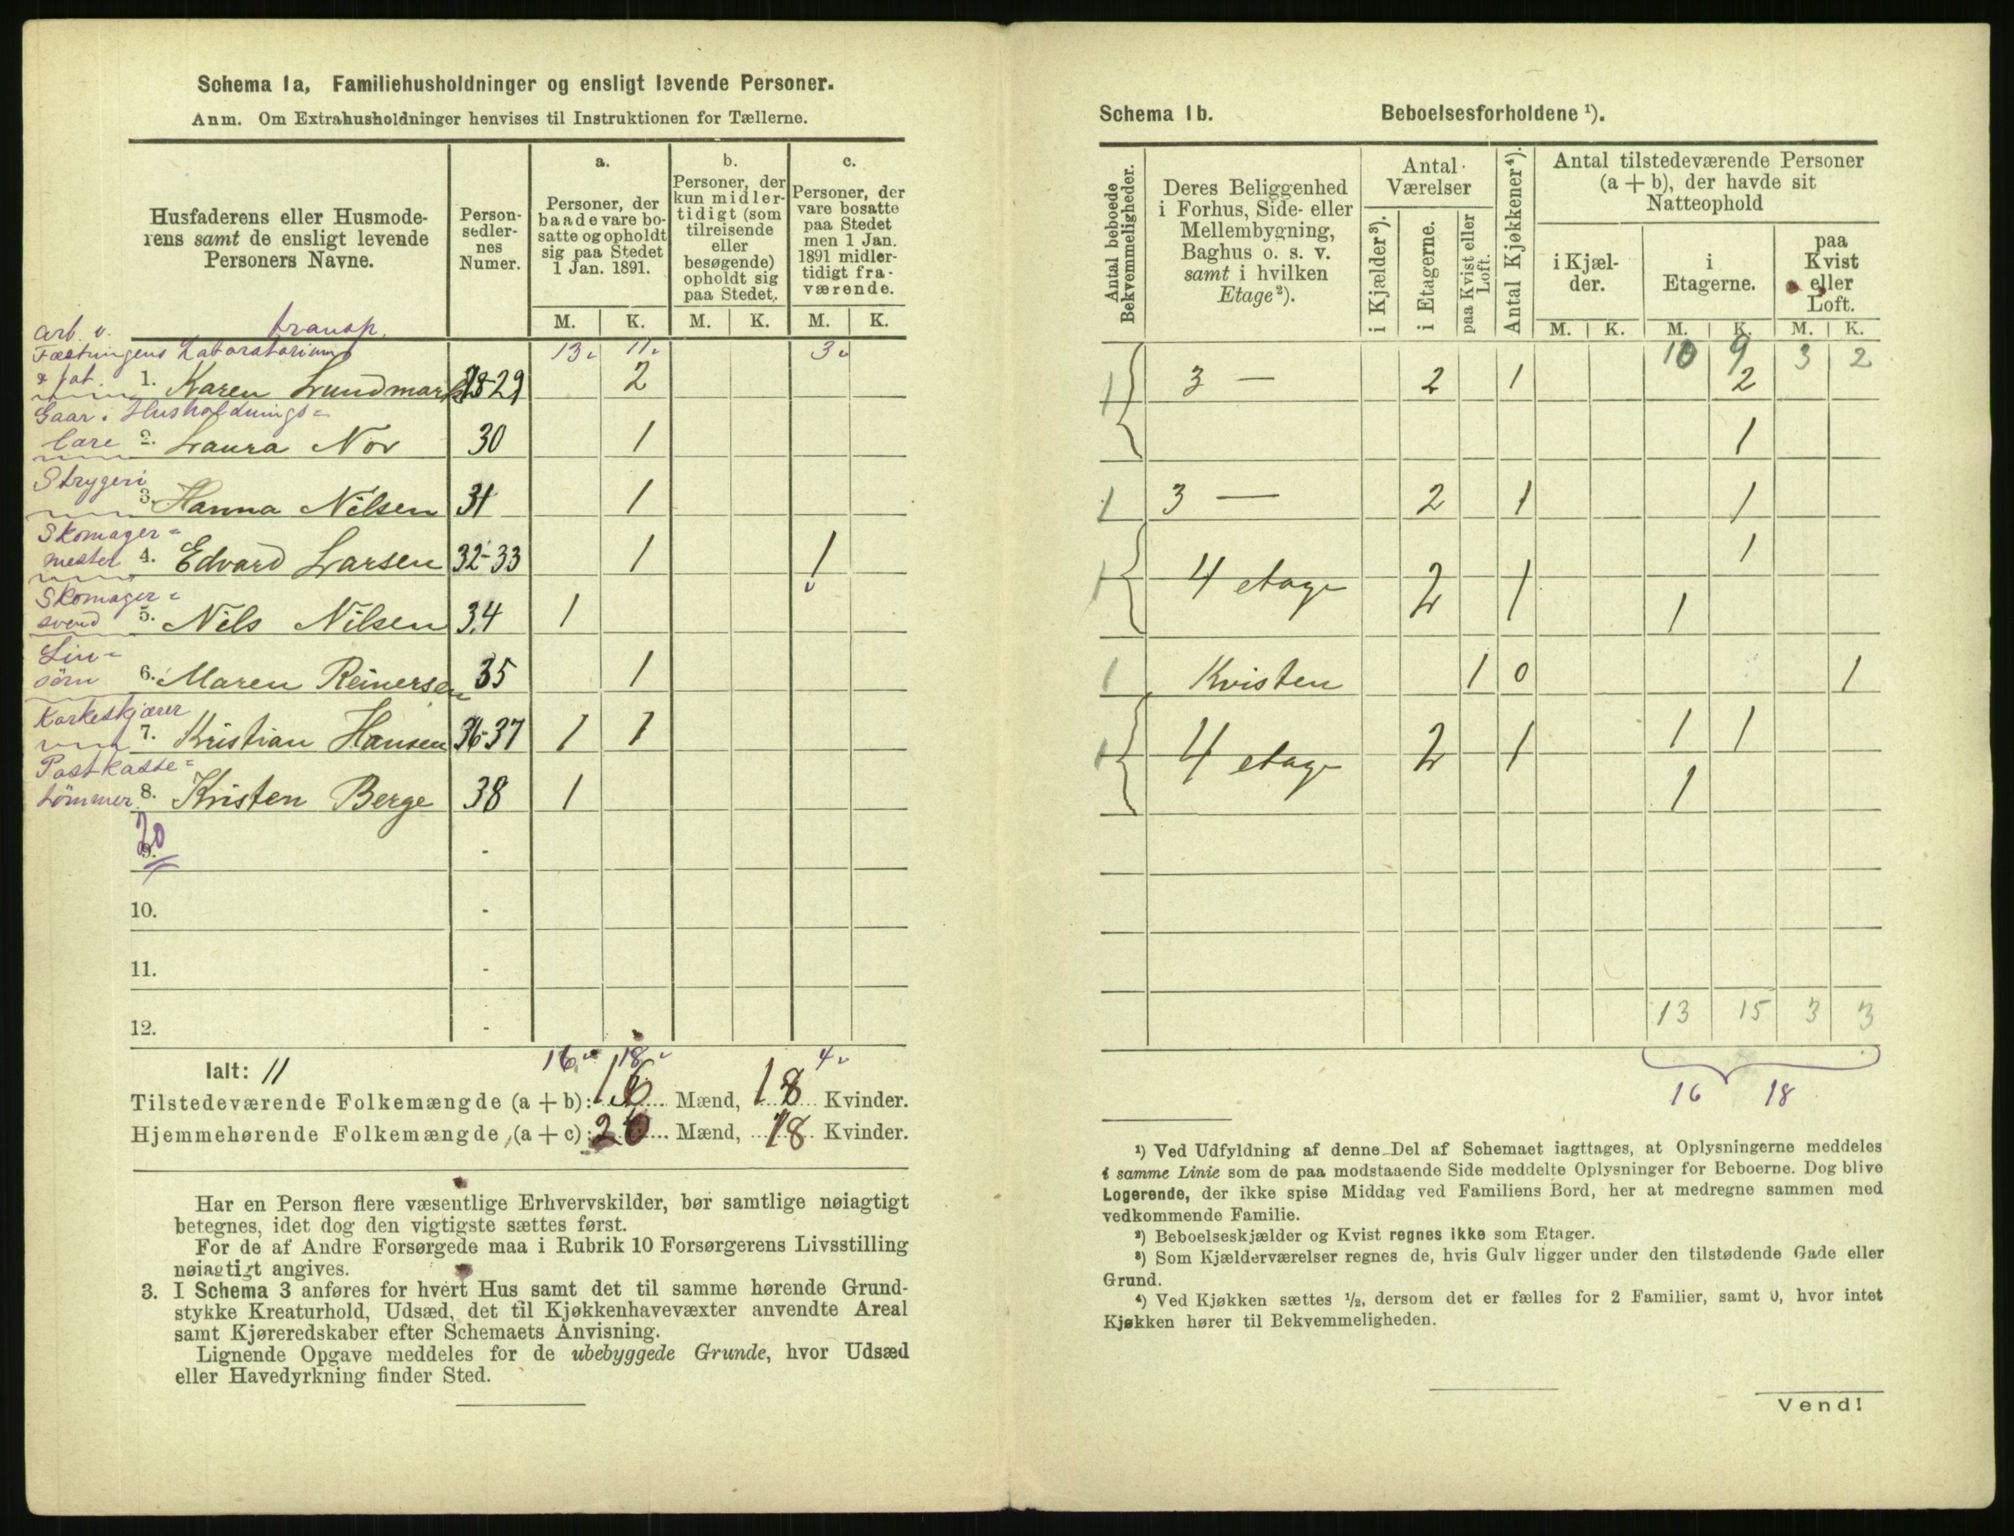 Schema 1a, Familiehusholdninger og ensligt levende Personer.
Anm. Om Extrahusholdninger henvises til Instruktionen for Tællerne.
Husfaderens eller Husmode-
rens samt de ensligt levende
Personers Navne.
Person-
sedler-
nes
Numer.
a.
Personer, der
baade vare bo-
satte og opholdt
sig paa Stedet
1 Jan. 1891.
b.
Personer, der
kun midler-
tidigt (som
tilreisende
eller
besøgende)
opholdt sig
paa Stedet.
c.
Personer, der
vare bosatte
paa Stedet
men 1 Jan.
1891 midler-
tidigt fra-
værende.
M. K. M. K. M. K.
arb. v. transp.
Fæstningens Laboratorium 13 11 3
& fat. 1. Karen Lundmark 28-29 2
Gaar i Husholdnings=
lære 2. Laura Nor 30 1
Strygeri
3. Hanna Nilsen 31 1
Skomager=
mester 4. Edvard Larsen 32-33 1 1
Skomager=
svend 5. Nils Nilsen 34 1
Lin=
sörn 6. Maren Reinersen 35 1
Korkeskjærer
7. Kristian Hansen 36-37 1 1
Postkasse=
tömmer 8. Kristen Berge 38 1
20
9.
10.
11.
12.
Ialt: 11 16 18 4
Tilstedeværende Folkemængde (a + b): 16 Mænd, 18 Kvinder.
Hjemmehørende Folkemængde (a + c): 20 Mænd, 18 Kvinder.
Har en Person flere væsentlige Erhvervskilder, bør samtlige nøiagtigt
betegnes, idet dog den vigtigste sættes først.
For de af Andre Forsørgede maa i Rubrik 10 Forsørgerens Livsstilling
nøiagtigt angives.
3. I Schema 3 anføres for hvert Hus samt det til samme hørende Grund-
stykke Kreaturhold, Udsæd, det til Kjøkkenhavevæxter anvendte Areal
samt Kjøreredskaber efter Schemaets Anvisning.
Lignende Opgave meddeles for de ubebyggede Grunde, hvor Udsæd
eller Havedyrkning finder Sted.
Schema 1b. Beboelsesforholdene ¹).
Antal beboede
Bekvemmeligheder.
Deres Beliggenhed
i Forhus, Side- eller
Mellembygning,
Baghus o. s. v.
samt i hvilken
Etage²).
Antal
Værelser
i Kjælder³).
i Etagerne.
paa Kvist eller
Loft.
Antal Kjøkkener⁴).
Antal tilstedeværende Personer
(a + b), der havde sit
Natteophold
i Kjæl-
der.
i
Etagerne.
paa
Kvist
eller
Loft.
M. K. M. K. M. K.
10 9 3 2
1 3 — 2 1 2
1
1 3 — 2 1 1
1
1 4 etage 2 1
1
1 Kvisten 1 0 1
1 1
1 4 etage 2 1
1
13 15 3 3
16 18
¹) Ved Udfyldning af denne Del af Schemaet iagttages, at Oplysningerne meddeles
i samme Linie som de paa modstaaende Side meddelte Oplysninger for Beboerne. Dog blive
Logerende, der ikke spise Middag ved Familiens Bord, her at medregne sammen med
vedkommende Familie.
²) Beboelseskjælder og Kvist regnes ikke som Etager.
³) Som Kjælderværelser regnes de, hvis Gulv ligger under den tilstødende Gade eller
Grund.
⁴) Ved Kjøkken sættes ½, dersom det er fælles for 2 Familier, samt 0, hvor intet
Kjøkken hører til Bekvemmeligheden.
Vend!